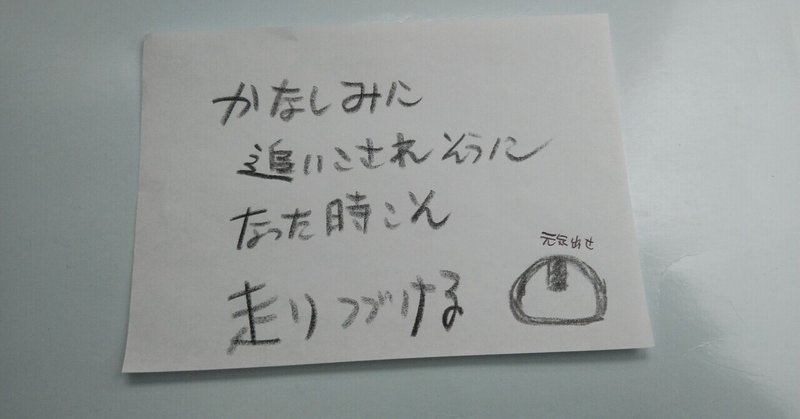 かなしみに
追いこされそうに
なった時こそ
走りつづける
元気出せ